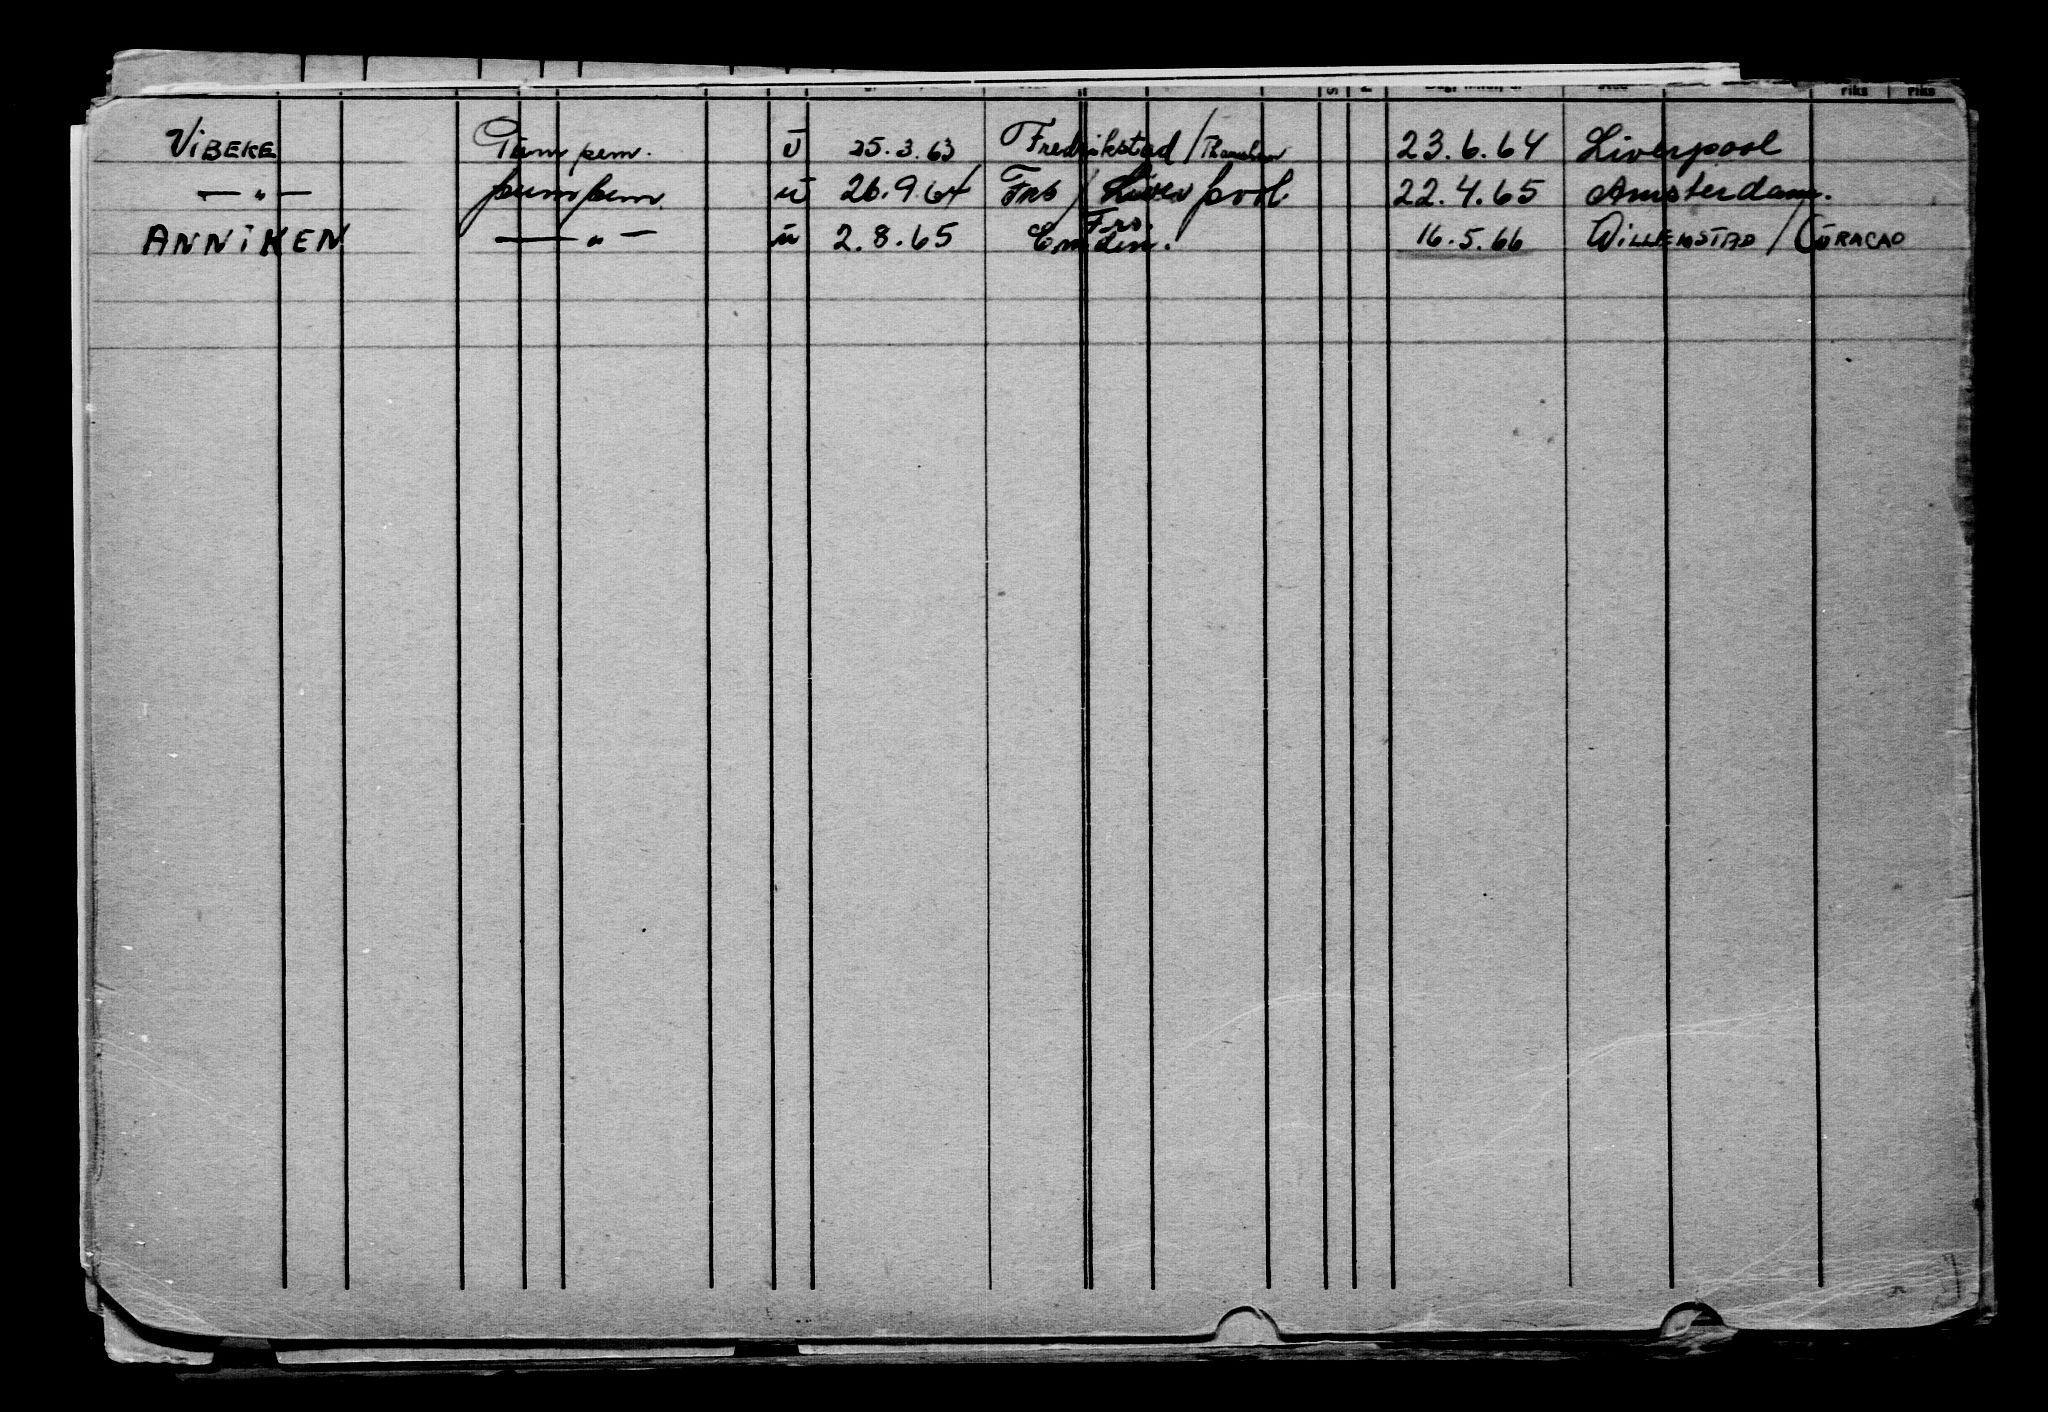 S Dag, Riks Riks
VIBEKE Pumpem. ū 25.3.63 Fredrikstad / 23.6.64 Liverpool
— " — pumpem. ū 26.9.64 Frs / Liverpool. 22.4.65 Amsterdam.
Frs.
ANNIKEN — " — ū 2.8.65 Emden. 16.5.66 WILLEMSTAD / CURACAO